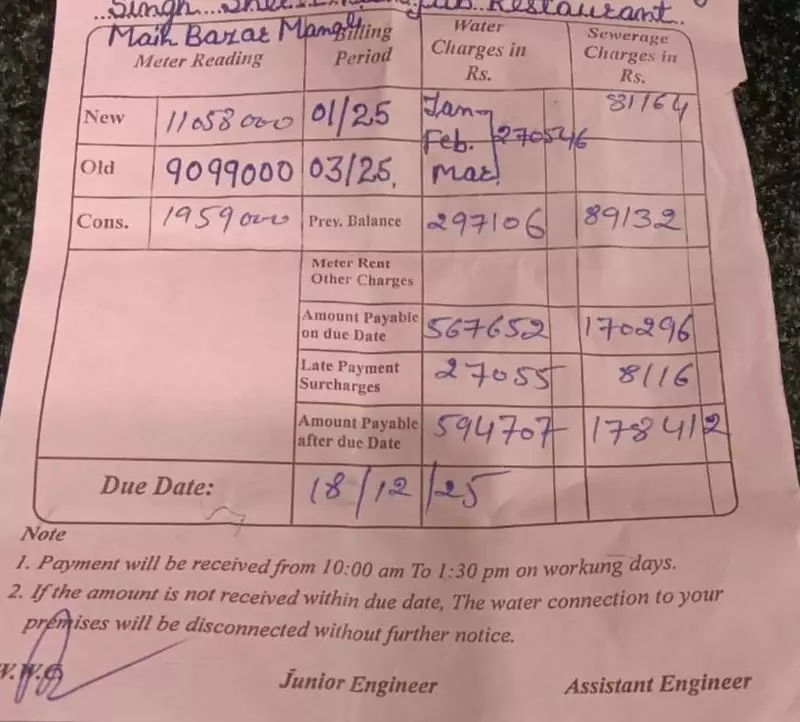 Singh Restaurant
Main Bazar Mangl
Meter Reading Billing Period Water Charges in Rs. Sewerage Charges in Rs.
New 11058000 01/25 Jan Feb. Mar 270546 81164
Old 9099000 03/25.
Cons. 1959000 Prev. Balance 297106 89132
Meter Rent
Other Charges
Amount Payable on due Date 567652 170296
Late Payment Surcharges 27055 8116
Amount Payable after due Date 594707 178412
Due Date: 18/12/25
Note
1. Payment will be received from 10:00 am To 1:30 pm on workung days.
2. If the amount is not received within due date, The water connection to your
premises will be disconnected without further notice.
Junior Engineer Assistant Engineer